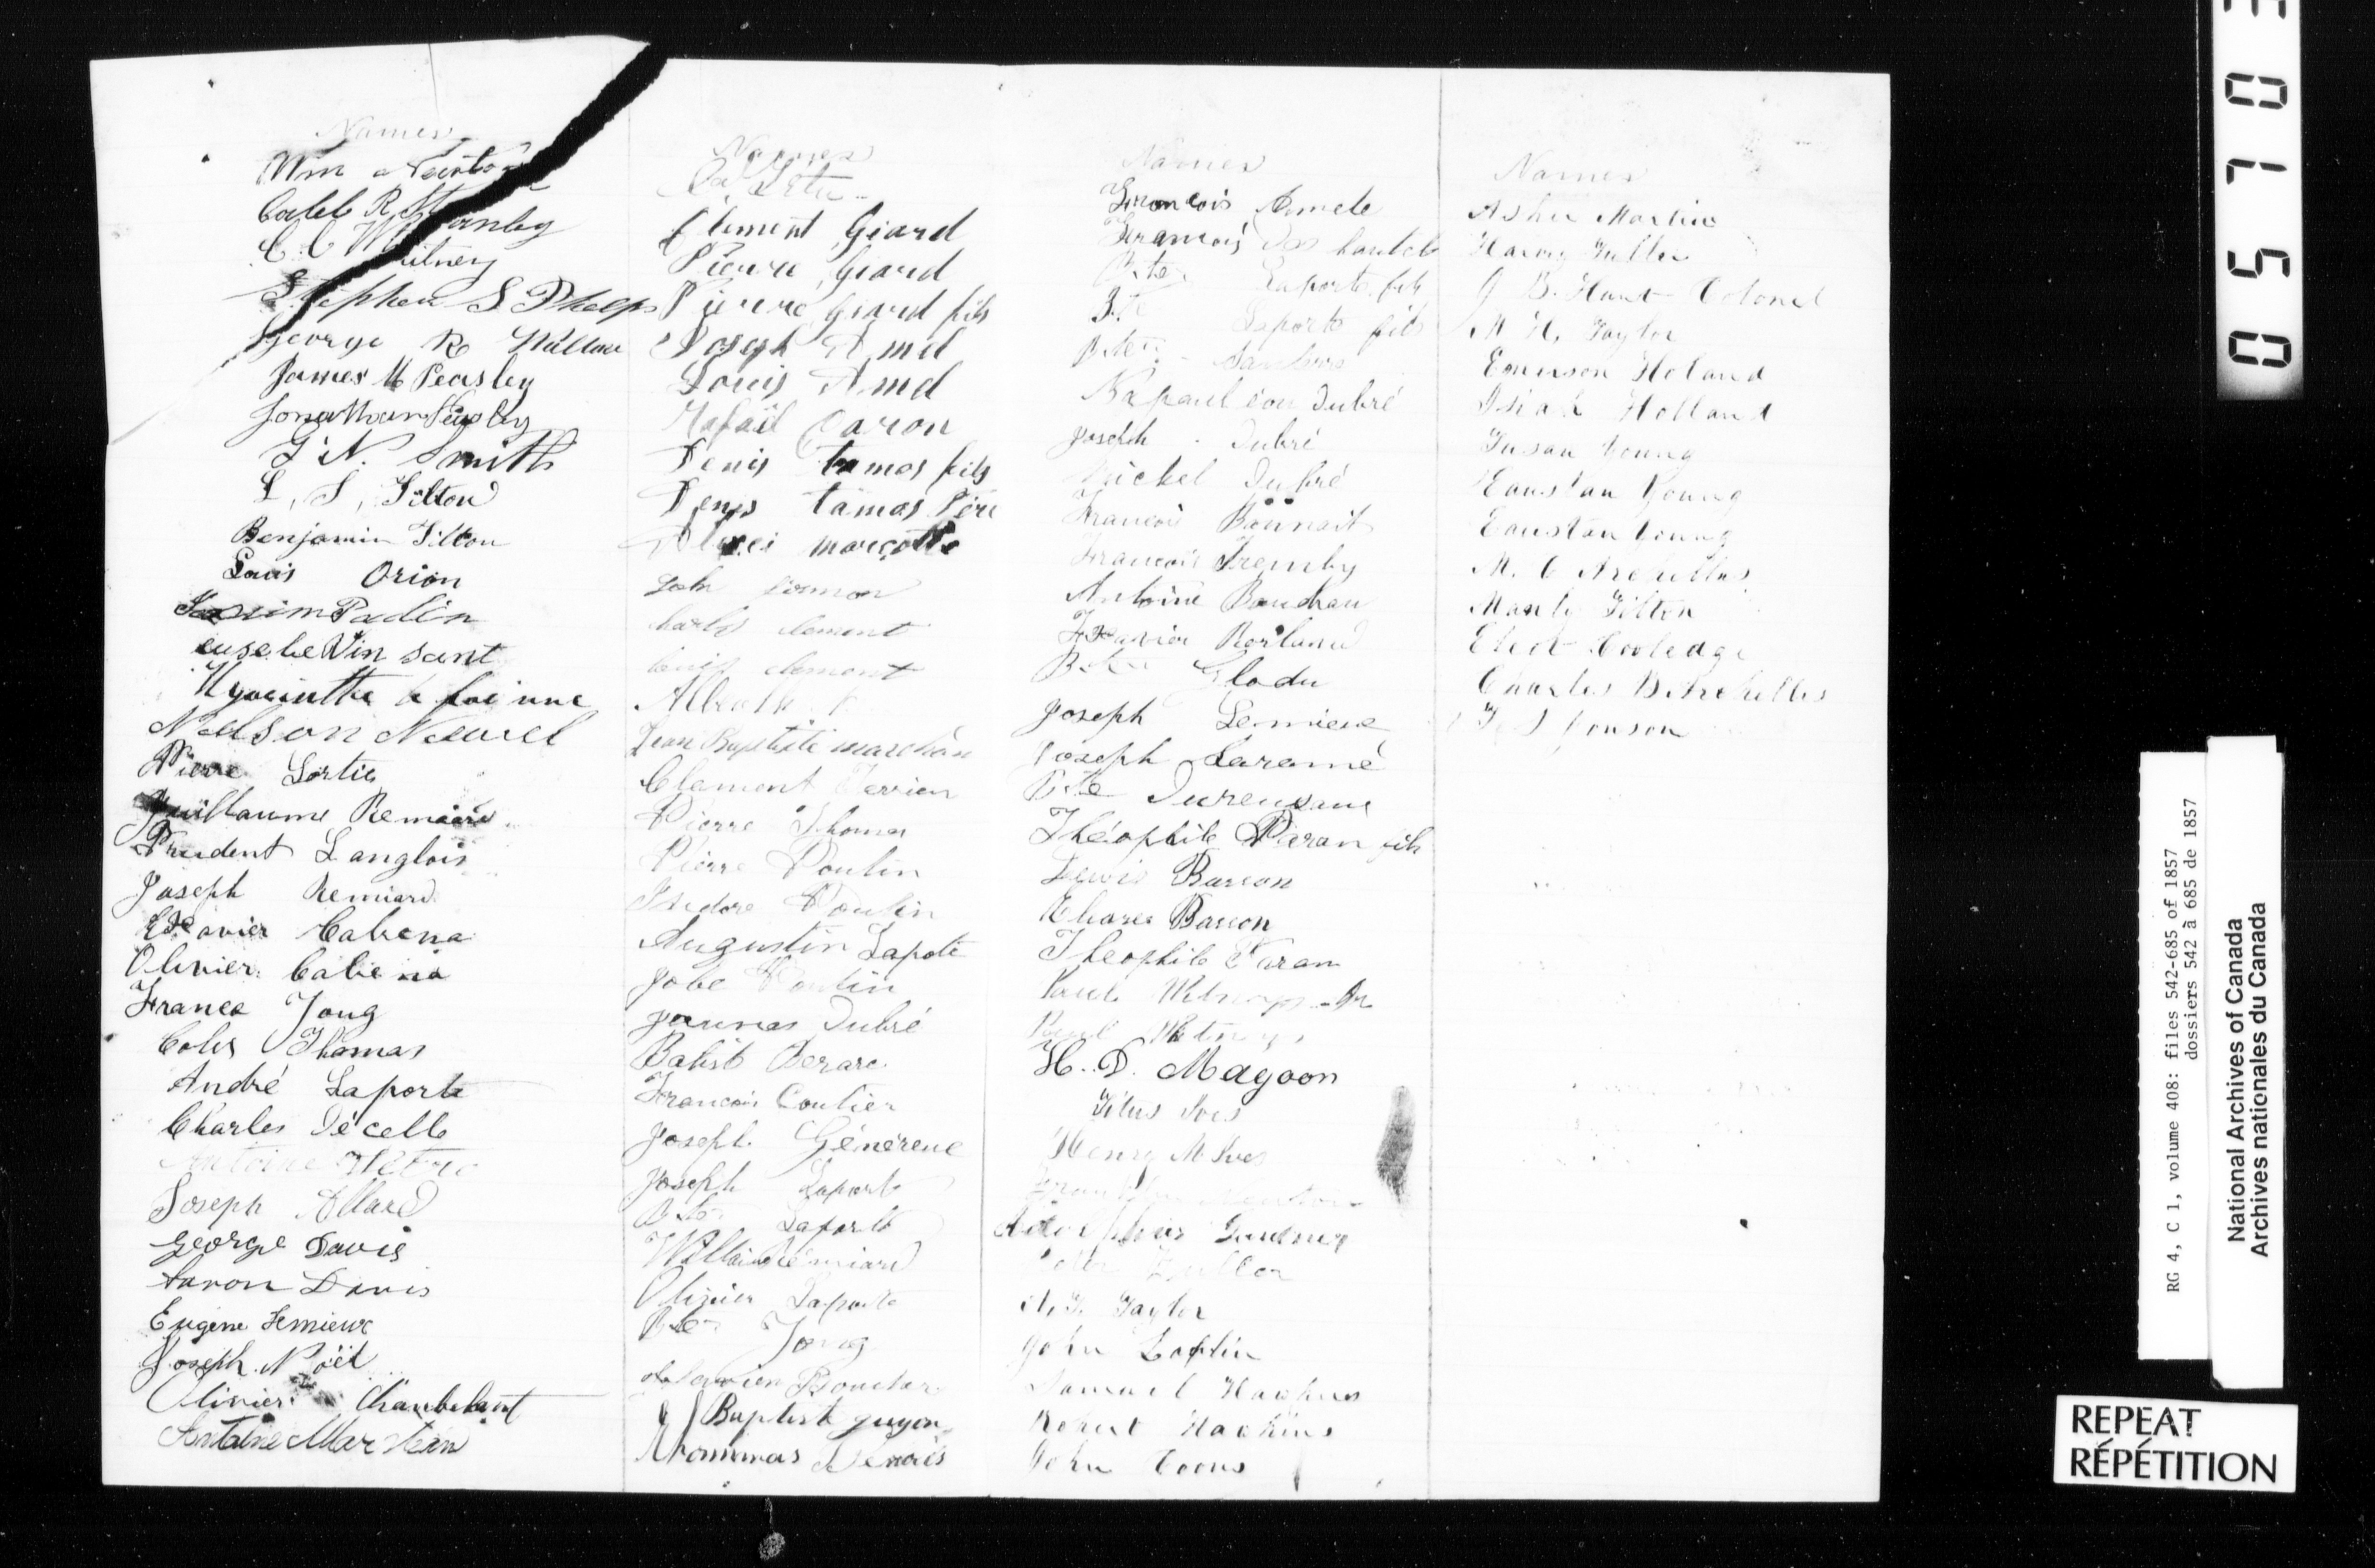 Names
Wm Newton
Caleb R Stanley
C C Whitney
Stephen S Phelps
George R Willson
James M Peasley
Jonathan Peasley
G N. Smith
L, S, Tilton
Benjamin Tilton
Louis Orion
Padin
eusebe Vin sant
Hyacinthe
Nelson Neuvel
Pierre Lortie
Guillaume Remaire
Prudent Langlois
Joseph Remiard
Exavier Cabena
Olivier Cabena
France Joug
Coler Thomas
André Laporte
Charles Décelle
Antoine Hétue
Joseph Allard
George Davis
Aaron Davis
Eugène Lemieux
Joseph Noël
Olivier Chambelant
Antoine Martein
Names
Clement Giard
Pierre Giard
Pierre Giard fils
Joseph Amel
Louis Amel
Rafaël Caron
Denis tamas fils
Denis tamas Père
Alexei marcotte
John
Charles clement
Louis clement
Jean Baptiste marchan
Clement Terrien
Pierre Thomas
Pierre Poulin
Isidore Poulin
Augustin Lapote
Jobe Poulin
Dubré
Batist Berard
Francois Coutier
Joseph Généreue
Joseph Laporte
Bte Laporte
William Remiard
Olivier Laporte
Bte Joug
Bouchar
J Baptiste guyon
Thommas Denois
Names
Francois Armele
Francois
Bte Laporte fils
Bte Laporte fils
Bte
Napauléon Dubré
Joseph Dubré
Michel Dubré
Francois Bonnait
Francois Tremby
Antoine Baudrau
Exavier
Bte Gladu
Joseph Lemieux
Joseph Laramé
Bte
Théophile Paran fils
Lewis Barron
Barron
Theophile Paran
Jr
H. D. Magoon
Titus Ives
Henry M Ives
Franklin Newton
Fuller
Taylor
John Laflin
Samuel Hackins
Robert Hackins
John Coons
Names
Asher Martin
Harvy Fuller
J B. Hunt Colonel
M H, Taylor
Emerson Holand
Isiah Holland
Susan Young
Eaustan Young
Eaustan Young
M. C Archilles
Manly Tilton
Eliot Cooledge
Charles B Archilles
Jonson
0570
RG 4, C 1, volume 408: files 542-685 of 1857
dossiers 542 à 685 de 1857
National Archives of Canada
Archives nationales du Canada
REPEAT
RÉPÉTITION